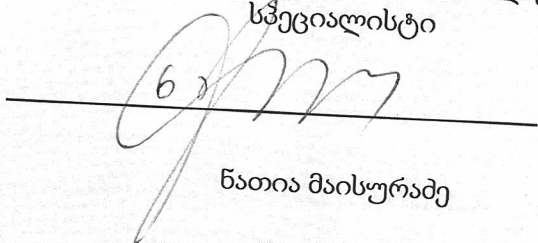 სპეციალისტი
ნათია მაისურაძე